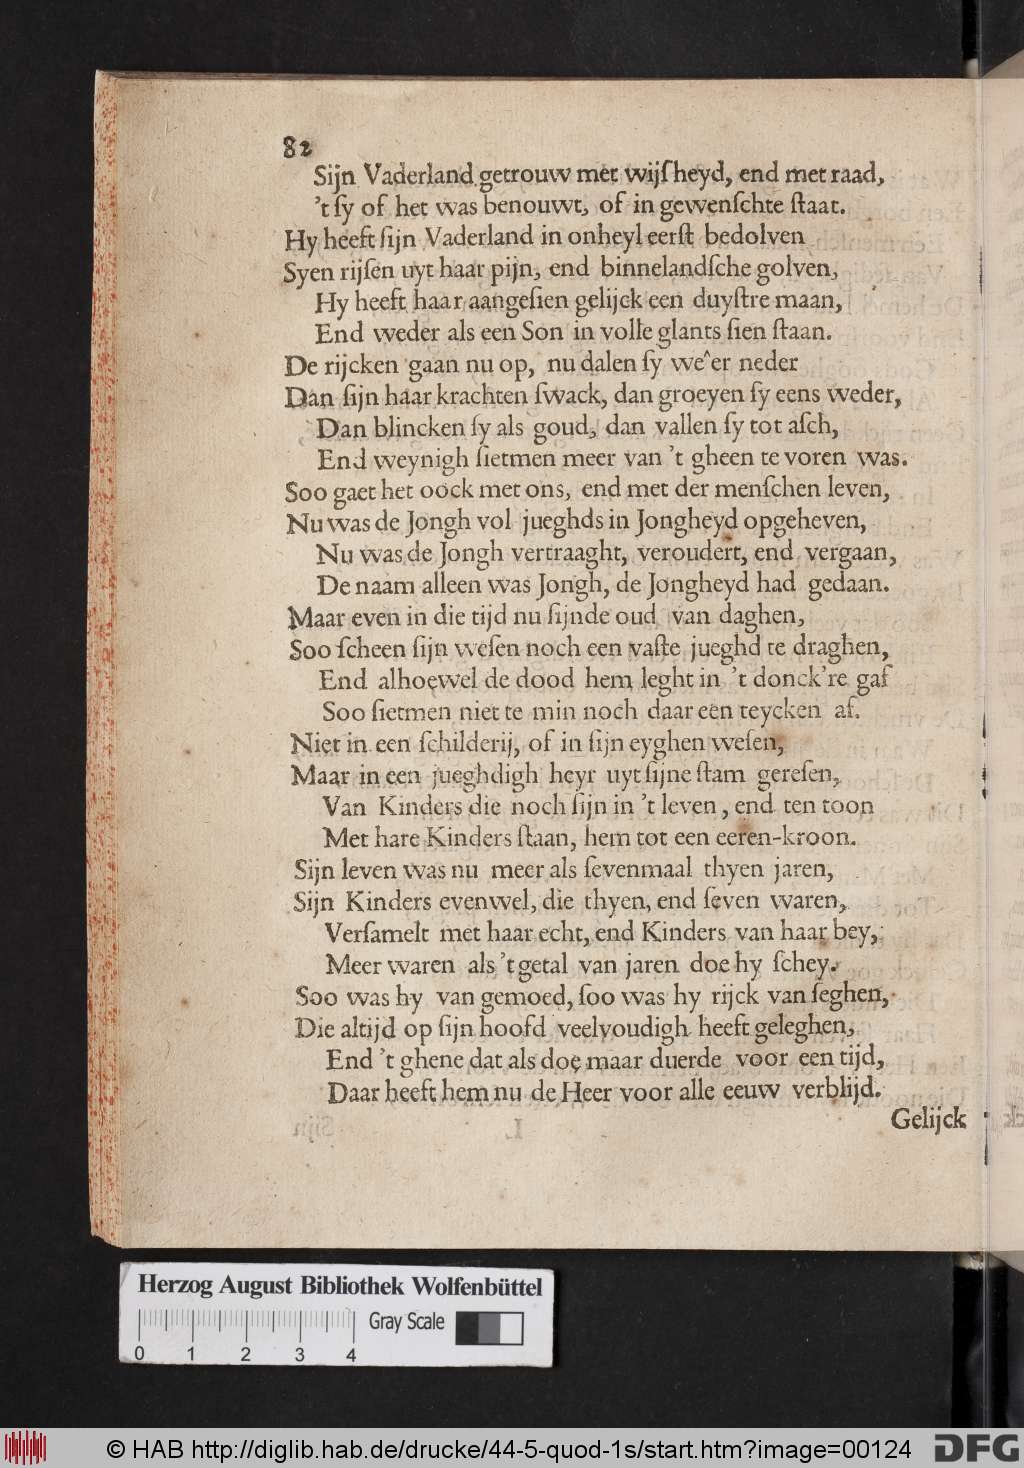 82
Sijn Vaderland getrouw met wijſheyd, end met raad,
't ſy of het was benouwt, of in gewenſchte ſtaat.
Hy heeft ſijn Vaderland in onheyl eerſt bedolven
Syen rijſen uyt haar pijn, end binnelandſche golven,
Hy heeft haar aangeſien gelijck een duyſtre maan,
End weder als een Son in volle glants ſien ſtaan.
De rijcken gaan nu op, nu dalen ſy we^er neder
Dan ſijn haar krachten ſwack, dan groeyen ſy eens weder,
Dan blincken ſy als goud, dan vallen ſy tot aſch,
End weynigh ſietmen meer van 't gheen te voren was.
Soo gaet het oock met ons, end met der menſchen leven,
Nu was de Jongh vol jueghds in Jongheyd opgeheven,
Nu was de Jongh vertraaght, veroudert, end vergaan,
De naam alleen was Jongh, de Jongheyd had gedaan.
Maar even in die tijd nu ſijnde oud van daghen,
Soo ſcheen ſijn weſen noch een vaſte jueghd te draghen,
End alhoewel de dood hem leght in 't donck're gaf
Soo ſietmen niet te min noch daar een teycken af.
Niet in een ſchilderij, of in ſijn eyghen weſen,
Maar in een jueghdigh heyr uyt ſijne ſtam gereſen,
Van Kinders die noch ſijn in 't leven, end ten toon
Met hare Kinders ſtaan, hem tot een eeren-kroon.
Sijn leven was nu meer als ſevenmaal thyen jaren,
Sijn Kinders evenwel, die thyen, end ſeven waren,
Verſamelt met haar echt, end Kinders van haar bey,
Meer waren als 't getal van jaren doe hy ſchey.
Soo was hy van gemoed, ſoo was hy rijck van ſeghen,
Die altijd op ſijn hoofd veelvoudigh heeft geleghen,
End 't ghene dat als doe maar duerde voor een tijd,
Daar heeft hem nu de Heer voor alle eeuw verblijd.
Gelijck
Herzog August Bibliothek Wolfenbüttel
Gray Scale
0 1 2 3 4
© HAB http://diglib.hab.de/drucke/44-5-quod-1s/start.htm?image=00124
DFG